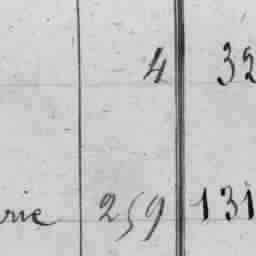 4 32
rie 259 131